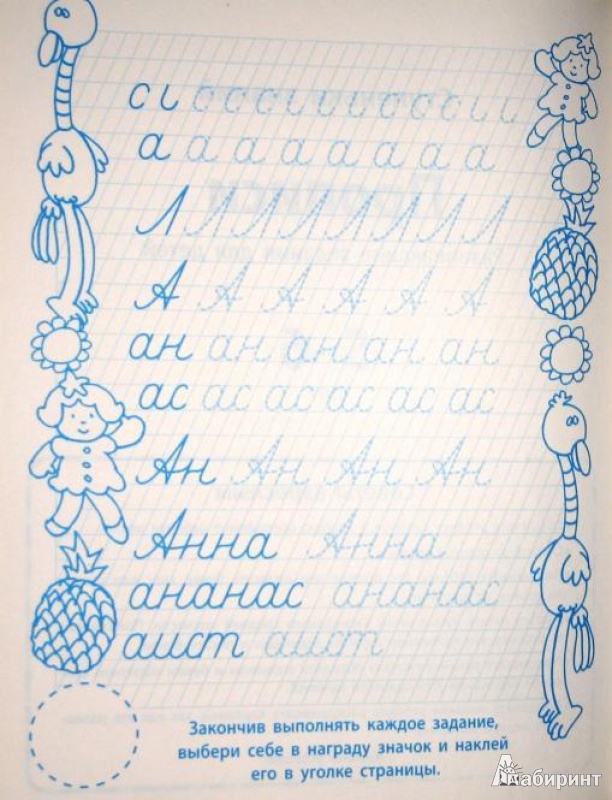 сı
а а а а а а а а а
Л Л Л Л Л Л Л Л
А А А А А А
ан ан ан ан ан
ас ас ас ас ас ас
Ан Ан Ан Ан
Анна Анна
ананас ананас
аист аист
Закончив выполнять каждое задание,
выбери себе в награду значок и наклей
его в уголке страницы.
Лабиринт